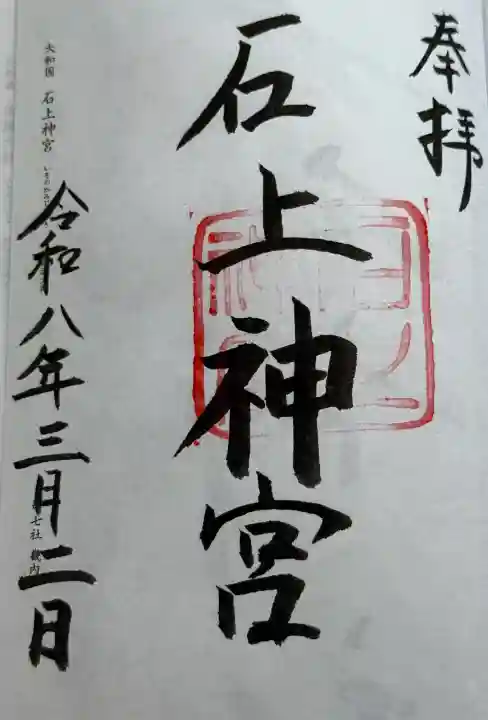 奉拝
石上神宮
大和國 石上神宮
令和八年三月二日
七社 畿内